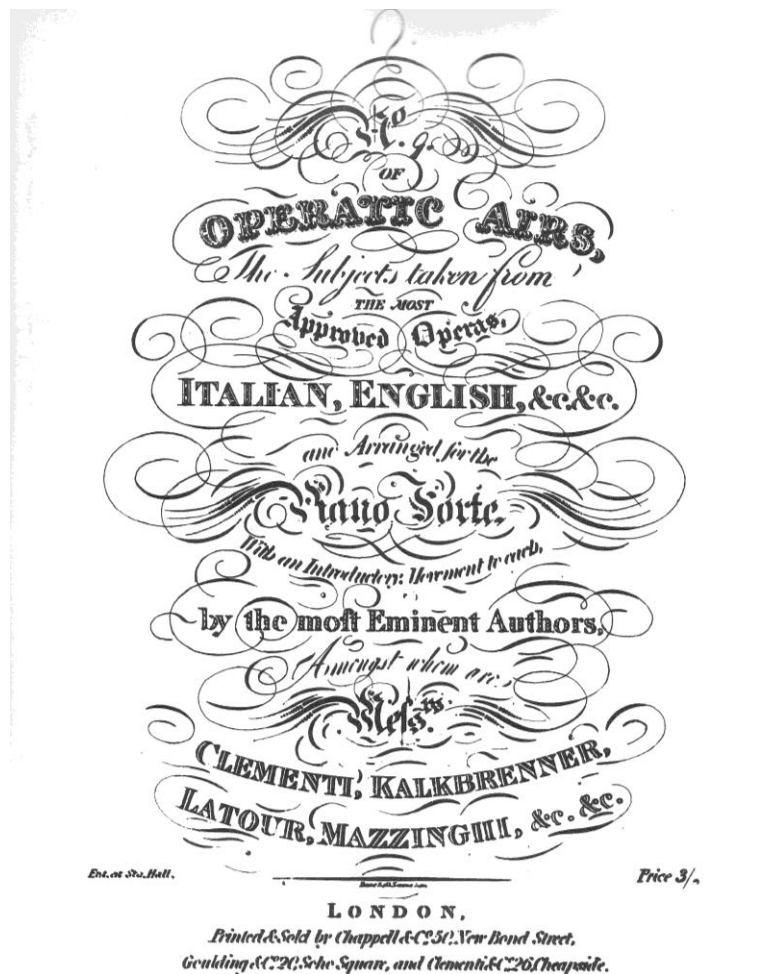 No. 9.
OF
OPERATIC AIRS,
The Subjects taken from
THE MOST
Approved Operas,
ITALIAN, ENGLISH, &c. &c.
and Arranged for the
Piano Forte,
With an Introductory Movement to each,
by the moſt Eminent Authors,
Amongst whom are,
Meſsrs.
CLEMENTI, KALKBRENNER,
LATOUR, MAZZINGHI, &c. &c.
Ent. at Sta. Hall. Price 3/-
LONDON,
Printed & Sold by Chappell & Co. 50, New Bond Street,
Goulding & Co. 20, Soho Square, and Clementi & Co. 26, Cheapside.